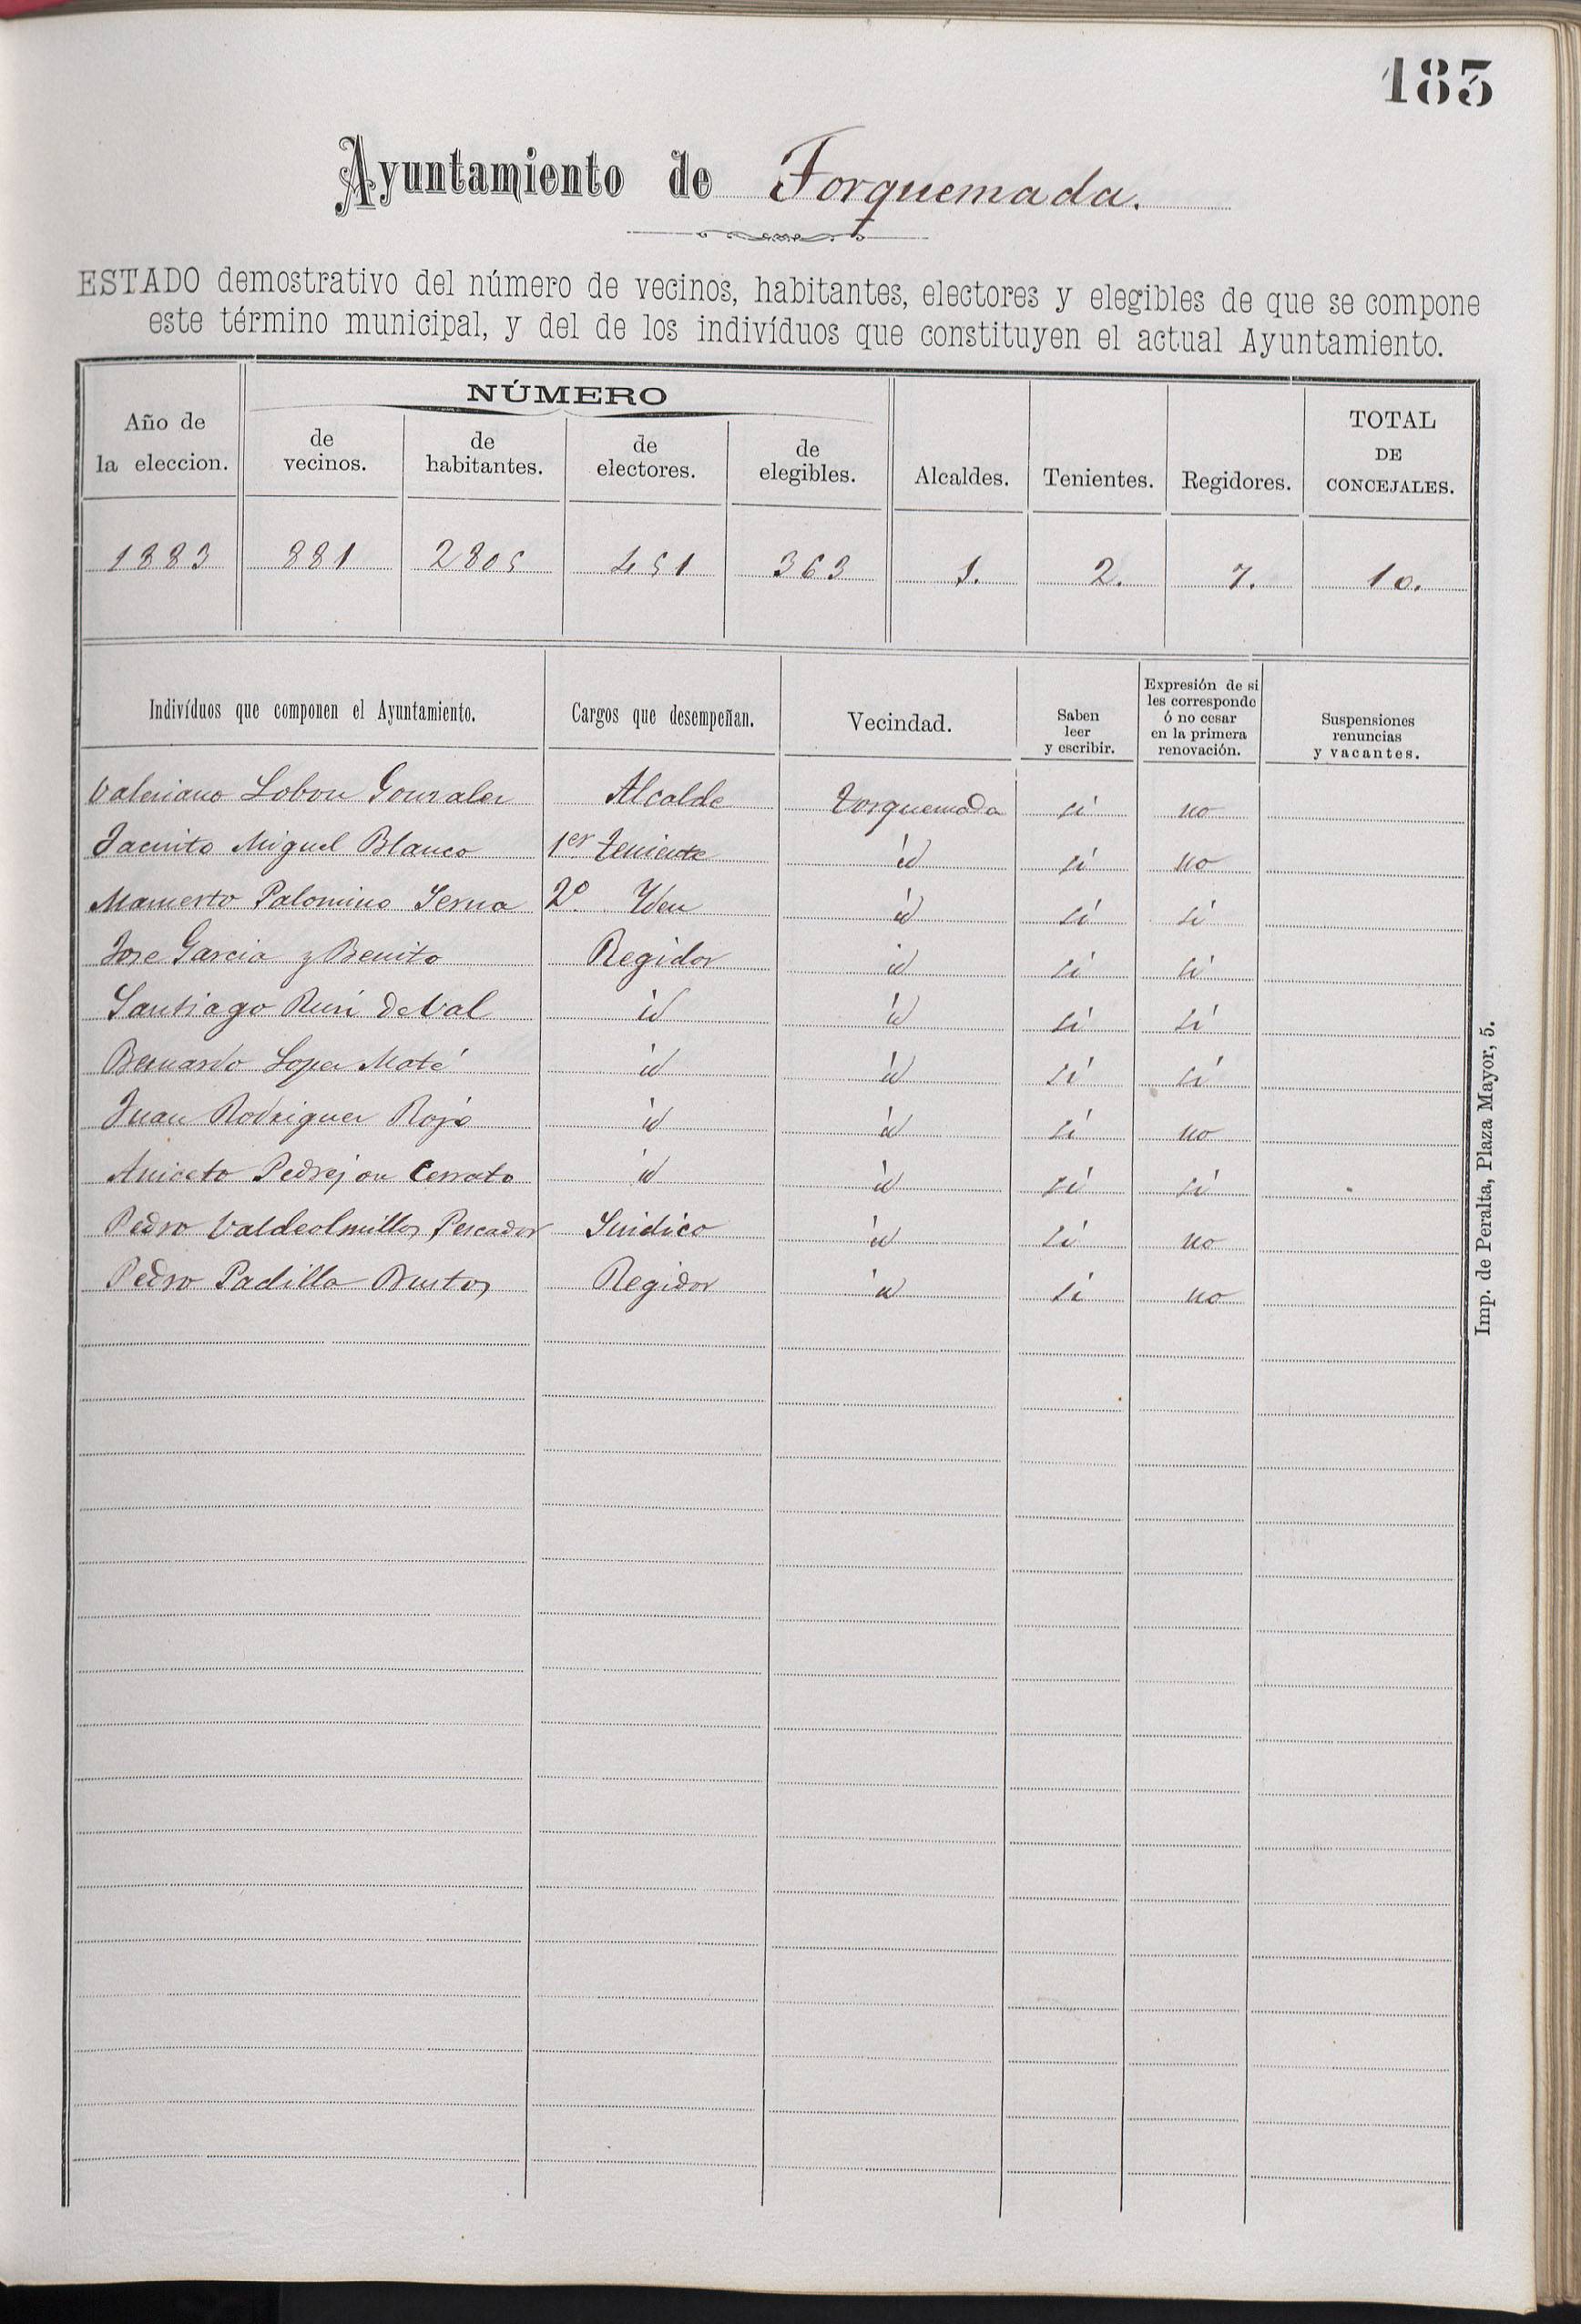 183
Ayuntamiento de Torquemada.
ESTADO demostrativo del número de vecinos, habitantes, electores y elegibles de que se compone
este término municipal, y del de los indivíduos que constituyen el actual Ayuntamiento.
Año de la eleccion. NÚMERO de vecinos. de habitantes. de electores. de elegibles. Alcaldes. Tenientes. Regidores. TOTAL DE CONCEJALES.
1883 881 2805 451 363 1. 2. 7. 10.
Indivíduos que componen el Ayuntamiento. Cargos que desempeñan. Vecindad. Saben leer y escribir. Expresión de si les corresponde ó no cesar en la primera renovación. Suspensiones renuncias y vacantes.
Valeriano Lobon Gonzalez Alcalde Torquemada si no
Jacinto Miguel Blanco 1er Teniente id si no
Mamerto Palomino Serna 2º Yden id si si
Jose Garcia y Benito Regidor id si si
Santiago de Val id id si si
Bernardo Lopez Maté id id si si
Juan Rodriguez Rojo id id si no
Aniceto Pedrejon Cerrato id id si si
Pedro Valdeolmillos Pescador Sindico id si no
Pedro Padilla Bustos Regidor id si no
Imp. de Peralta, Plaza Mayor, 5.